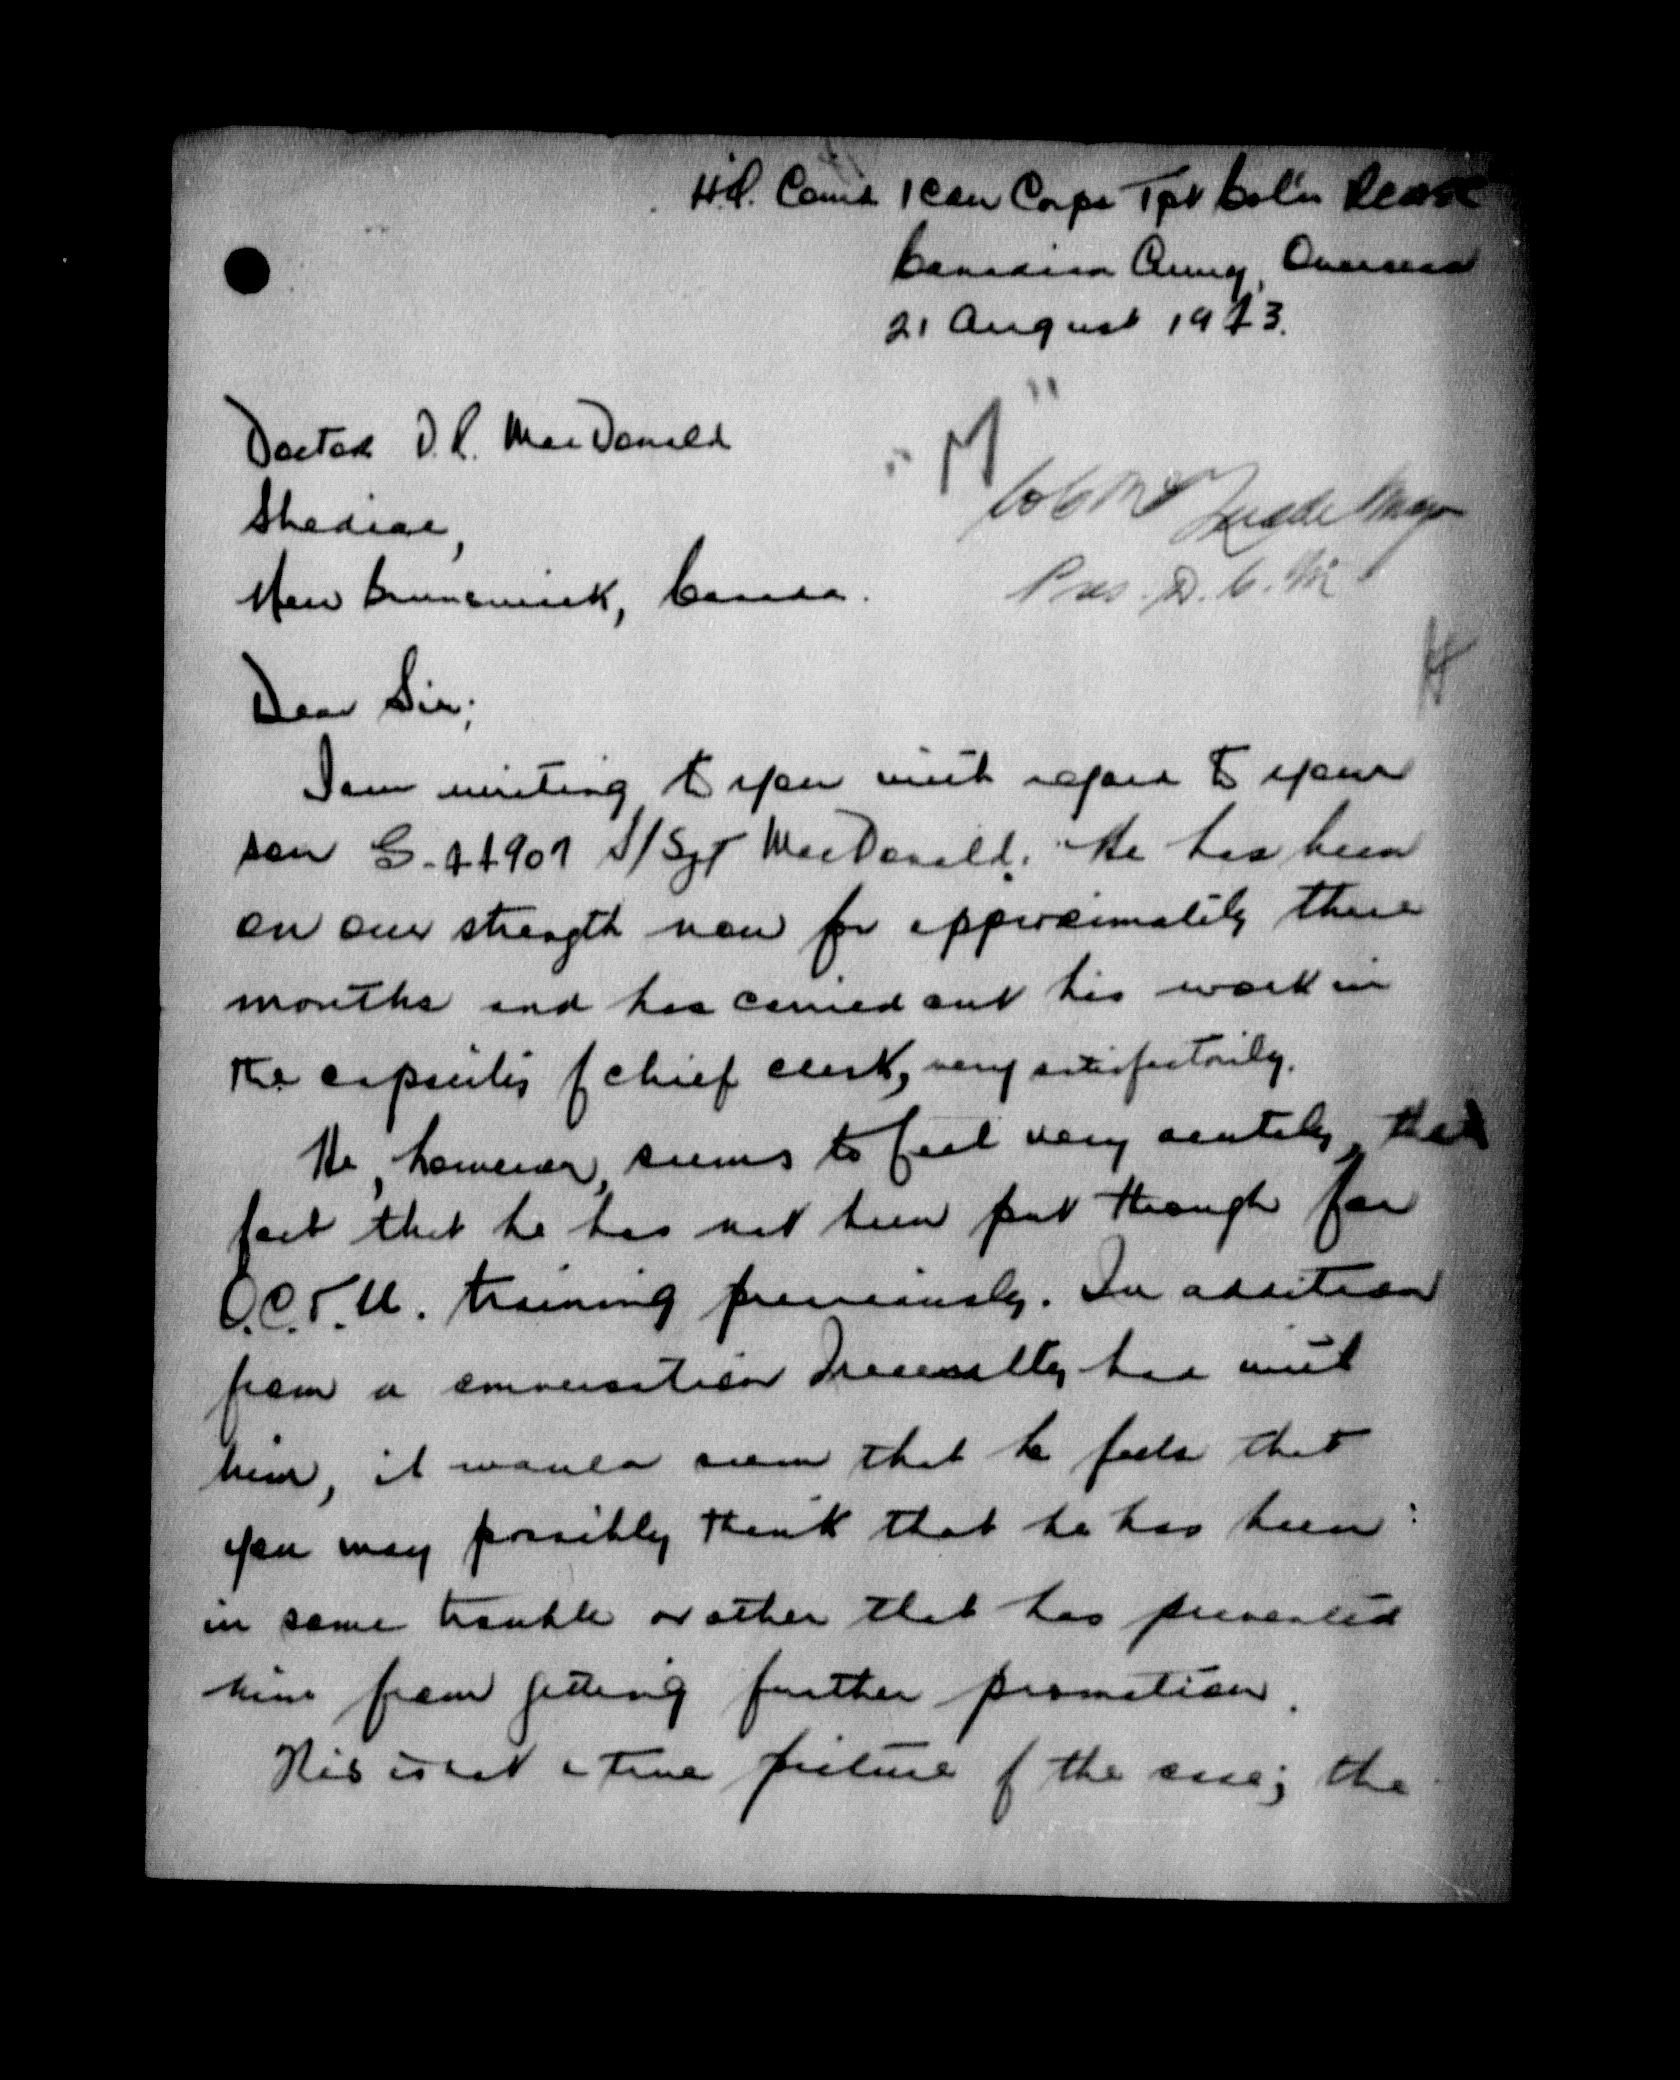 H.Q. Comd 1 Can Corps Tpt Col'n RCASC
Canadian Army, Overseas
21 August 1943.
"M"
Doctor D.R. MacDonald
Shediac,
New Brunswick, Canada.
Pres. D.C.M
Dear Sir;
I am writing to you with regard to your
son G-44907 S/Sgt MacDonald. He has been
on our strength now for approximately three
months and has carried out his work in
the capacity of chief clerk, very satisfactorily.
He, however, seems to feel very acutely, the
fact that he has not been put through for
O.C.T.U. training previously. In addition
from a conversation I recently had with
him, it would seem that he feels that
you may possibly think that he has been
in some trouble or other that has prevented
him from getting further promotion.
This is not a true picture of the case; the